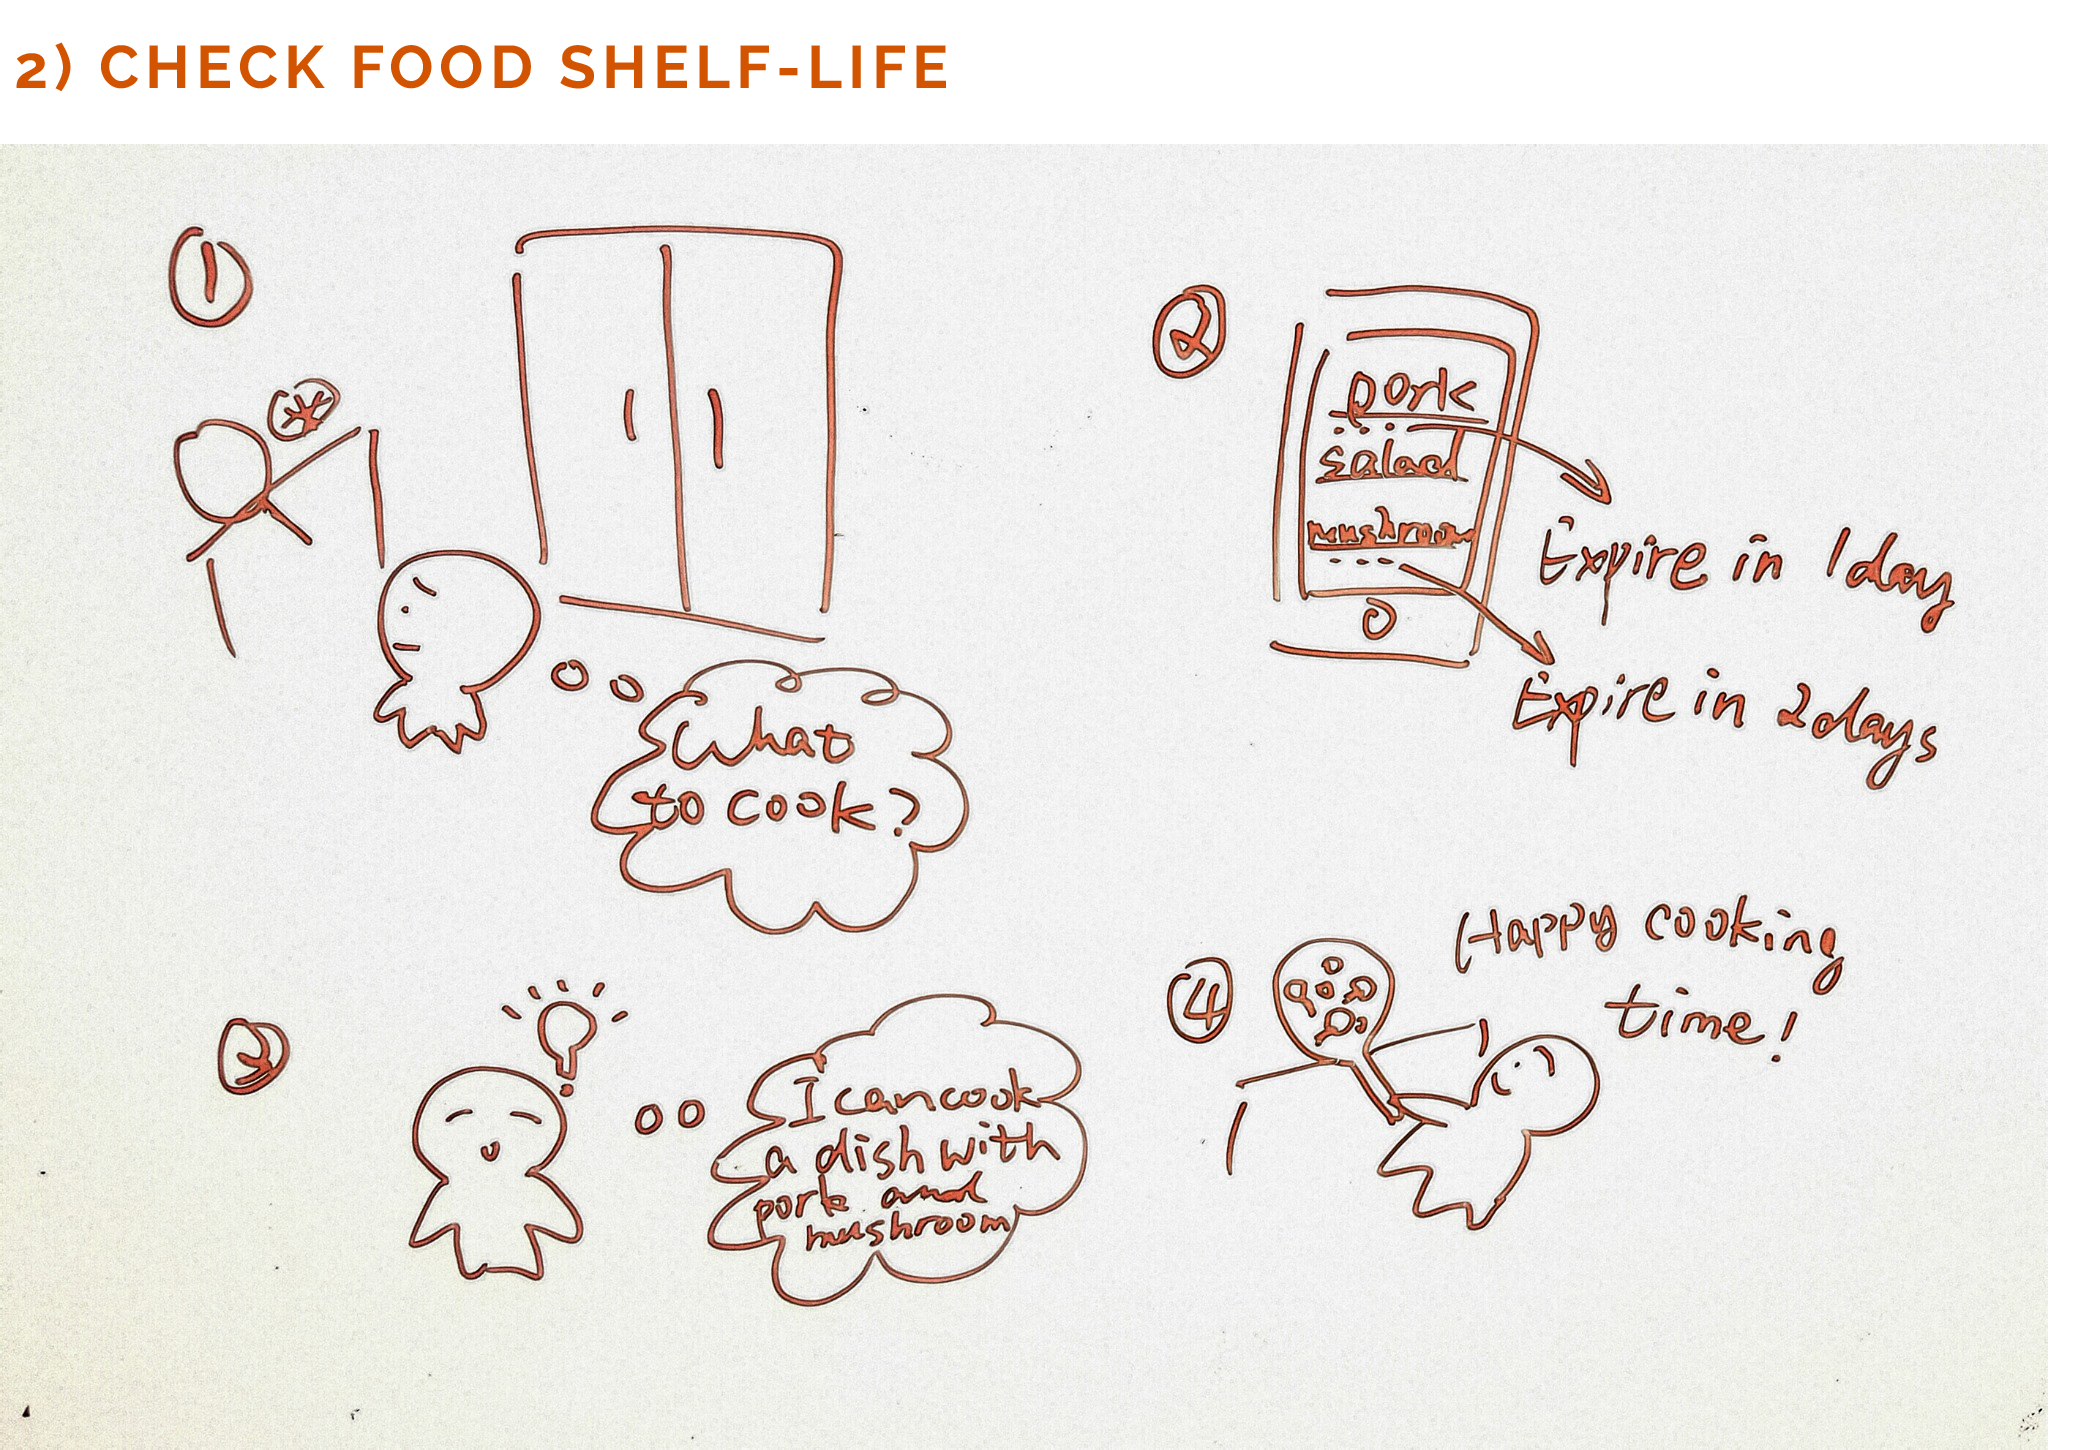 2) CHECK FOOD SHELF-LIFE
1
What
to cook?
2
pork
salad
mushroom
Expire in 1 day
Expire in 2 days
3
I can cook
a dish with
pork and
mushroom
4
Happy cooking
time!